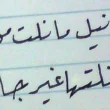 نيل ما نلت مو
نلتها غير جا